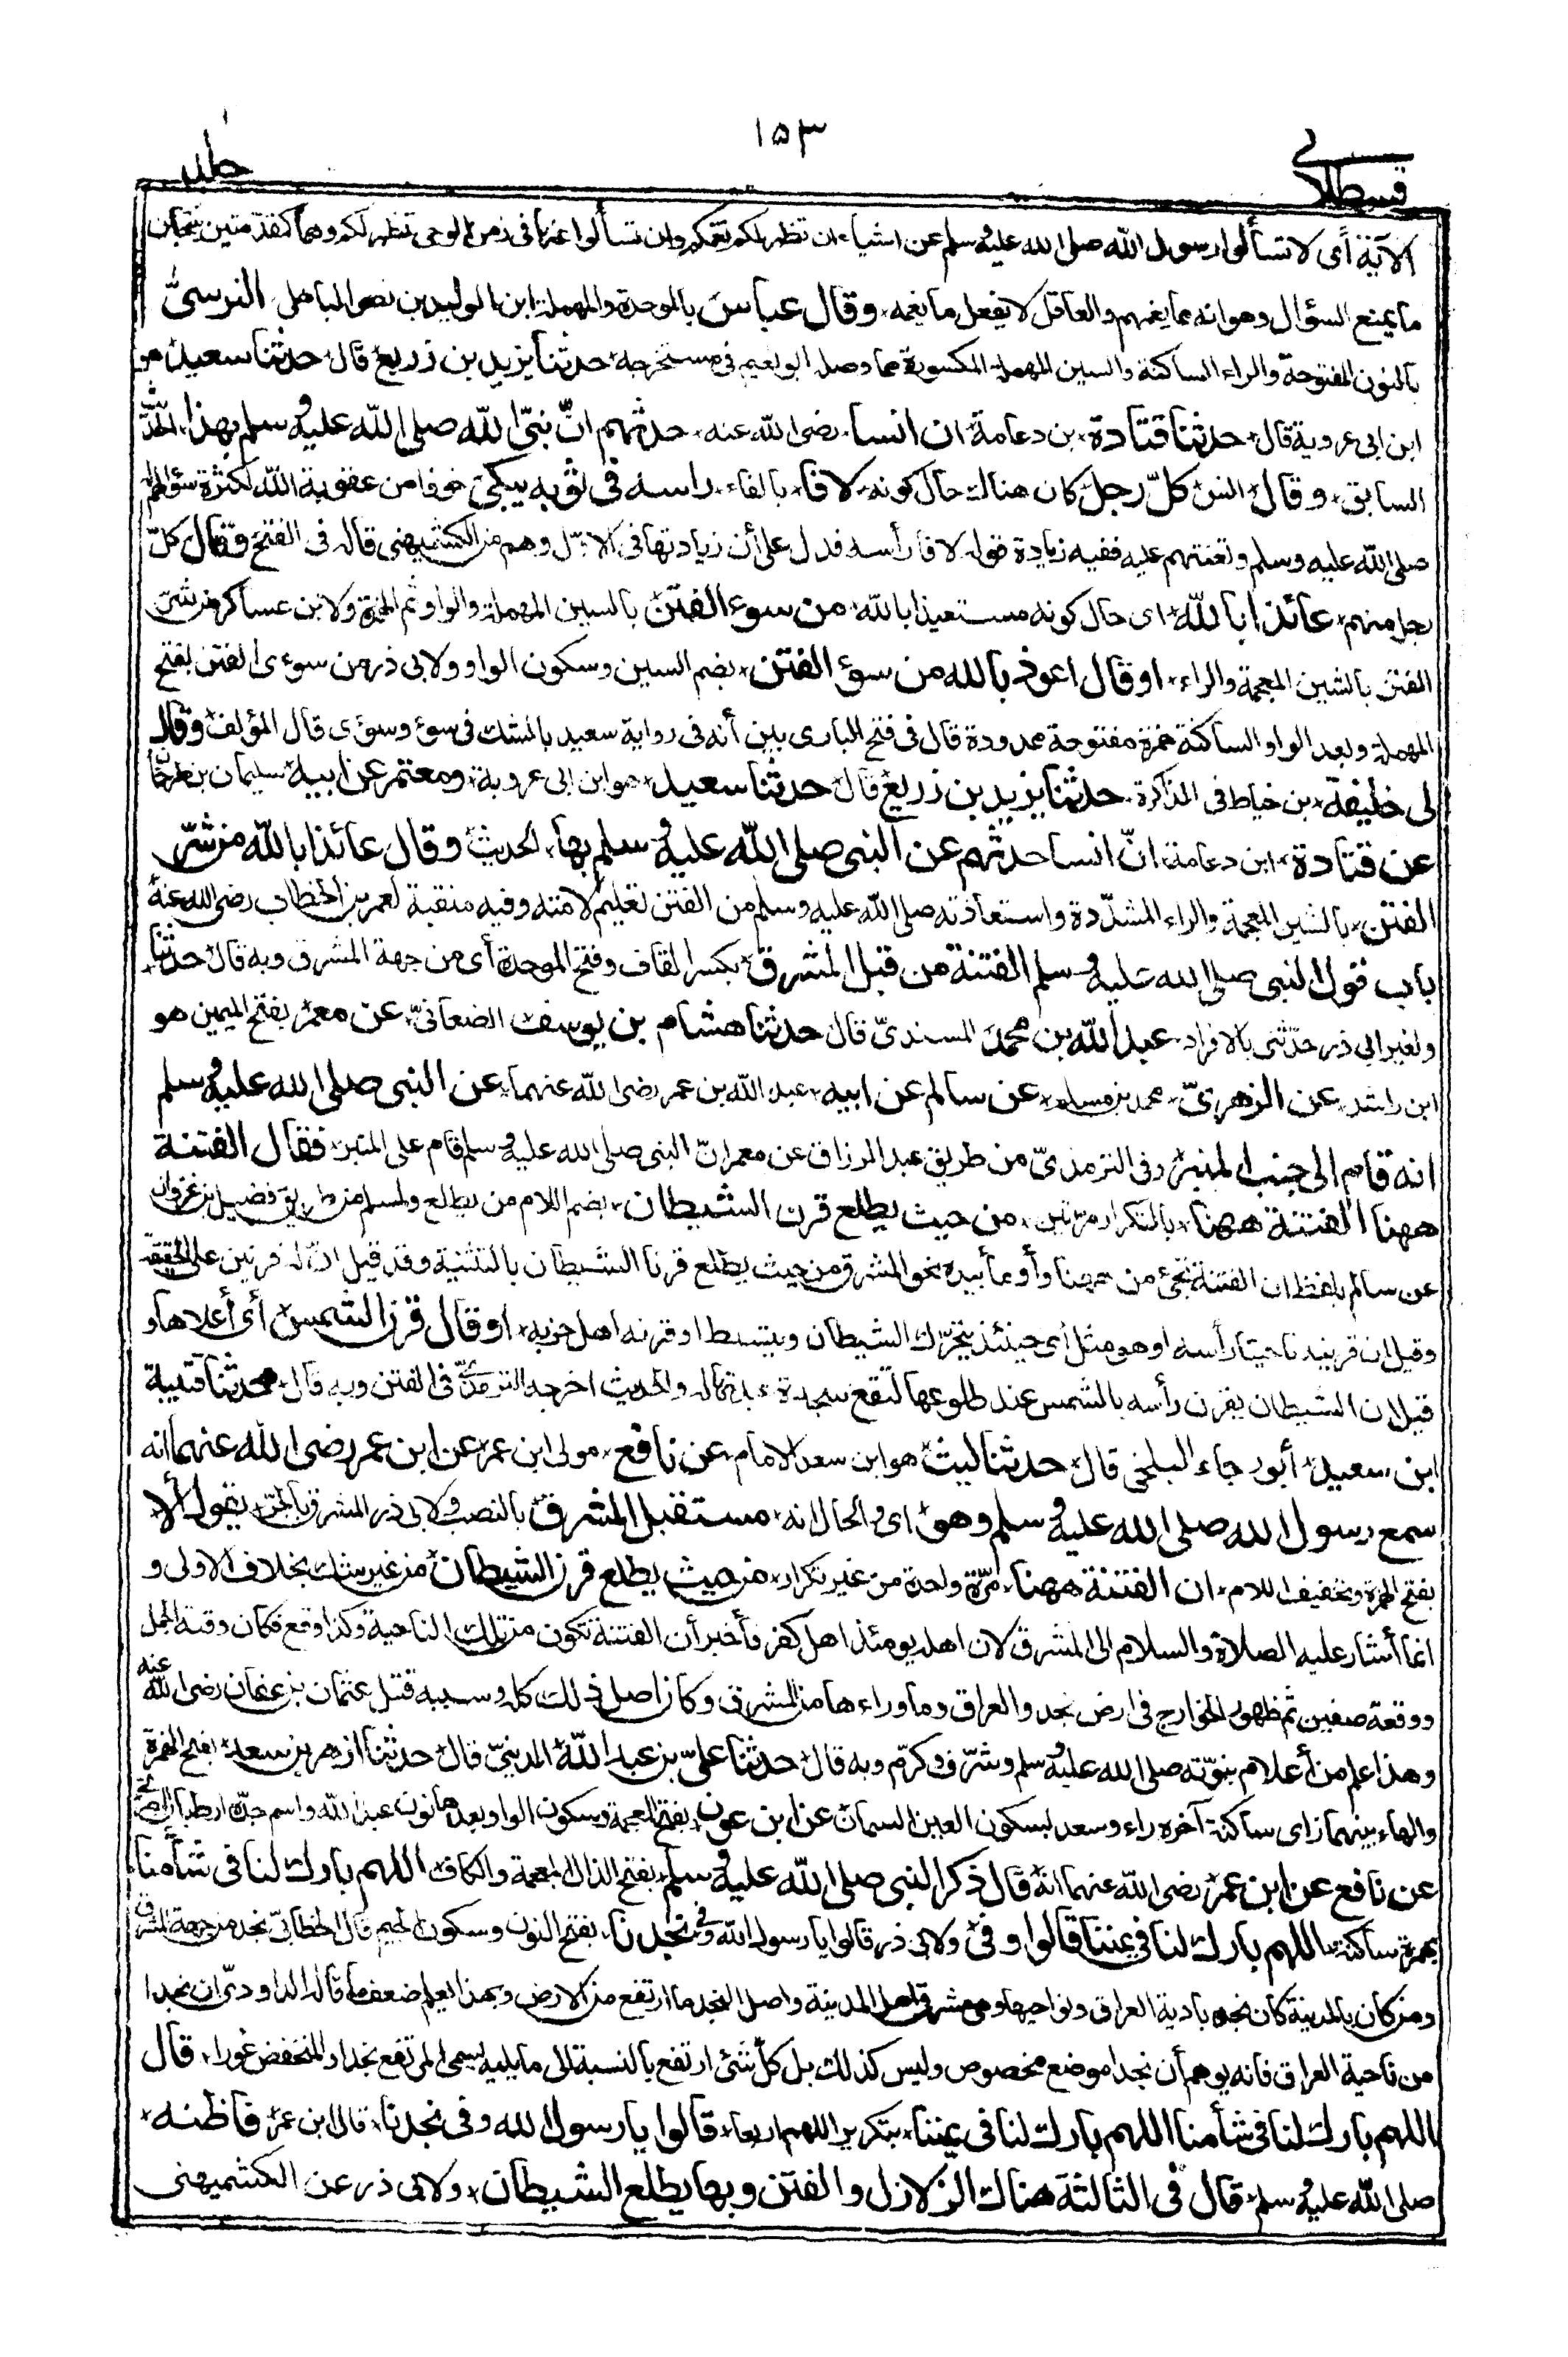 ١٥٣
قسطلانی
جلد
الآية أى لا تسألوا رسول الله صلى الله عليه وسلم عن اشياء ان تظهر لكم تغمكم وان تسألوا عنها فى زمن الوحى تظهر لكم وهما كمقدمتين ينتجان
ما يمنع السؤال وهو انه مما يغمهم والعاقل لا يفعل ما يغمه وقال عباس بالموحدة والمهملة ابن الوليد بن نصر الباهلى النرسىّ
بالنون المفتوحة والراء الساكنة والسين المهملة المكسورة مما وصله ابو نعيم فى مستخرجه حدثنا يزيد بن زريع قال حدثنا سعيد هو
ابن ابى عروبة قال حدثنا قتادة بن دعامة ان انسا رضى الله عنه حدثهم انّ نبىّ الله صلى الله عليه وسلم بهذا الحديث
السابق وقال انس كلّ رجل كان هناك حال كونه لافا بالفاء راسه فى ثوبه يبكى خوفا من عقوبة الله لكثرة سؤالهم له
صلى الله عليه وسلم وتعنتهم عليه ففيه زيادة قوله لافا رأسه فدل على أن زيادتها فى الاوّل وهم من الكشميهنى قاله فى الفتح وقال كلّ
رجل منهم عائذا بالله اى حال كونه مستعيذا بالله من سوء الفتن بالسين المهملة والواو ثم الهمزة ولابن عساكر من شرّ
الفتن بالشين المعجمة والراء او قال اعوذ بالله من سؤ الفتن بضم السين وسكون الواو ولابى ذر من سوءى الفتن بفتح
المهملة وبعد الواو الساكنة همزة مفتوحة ممدودة قال فى فتح البارى بين أنه فى رواية سعيد بالشك فى سؤ وسؤى قال المؤلف وقال
لى خليفة بن خياط فى المذاكرة حدثنا يزيد بن زريع قال حدثنا سعيد هو ابن ابى عروبة ومعتمر عن ابيه سليمان بن طرخان
عن قتادة ابن دعامة انّ انسا حدثهم عن النبى صلى الله عليه وسلم بهذا الحديث وقال عائذا بالله من شرّ
الفتن بالشين المعجمة والراء المشدّدة واستعاذته صلى الله عليه وسلم من الفتن تعليم لامته وفيه منقبة لعمر بن الخطاب رضى الله عنه
باب قول النبى صلى الله عليه وسلم الفتنة من قبل المشرق بكسر القاف وفتح الموحدة أى من جهة المشرق وبه قال حدثنا
ولغير ابى ذر حدّثنى بالافراد عبد الله بن محمد المسندىّ قال حدثنا هشام بن يوسف الصنعانىّ عن معمر بفتح الميمين هو
ابن راشد عن الزهرىّ محمد بن مسلم عن سالم عن ابيه عبد الله بن عمر رضى الله عنهما عن النبى صلى الله عليه وسلم
انه قام الى جنب المنبر وفى الترمذىّ من طريق عبد الرزاق عن معمر انّ النبى صلى الله عليه وسلم قام على المنبر فقال الفتنة
ههنا الفتنة ههنا بالتكرار مرّتين من حيث يطلع قرن الشيطان بضم اللام من يطلع ولمسلم من طريق فضيل بن غزوان
عن سالم بلفظ ان الفتنة تجىء من ههنا وأومأ بيده نحو المشرق من حيث يطلع قرنا الشيطان بالتثنية وقد قيل انّ له قرنين على الحقيقة
وقيل ان قرنيه ناحيتا رأسه او هو مثل أى حينئذ يتحرّك الشيطان ويتسلط او قرنه اهل حزبه او قال قرن الشمس أى أعلاها و
قيل ان الشيطان يقرن رأسه بالشمس عند طلوعها لتقع سجدة عبدتها له والحديث اخرجه الترمذىّ فى الفتن وبه قال حدثنا قتيبة
ابن سعيد أبو رجاء البلخى قال حدثنا ليث هو ابن سعد الامام عن نافع مولى ابن عمر عن ابن عمر رضى الله عنهما انه
سمع رسول الله صلى الله عليه وسلم وهو اى والحال انه مستقبل المشرق بالنصب ولابى ذر المشرق بالجرّ يقول ألا
بفتح الهمزة وتخفيف اللام ان الفتنة ههنا مرّة واحدة من غير تكرار من حيث يطلع قرن الشيطان من غير شك بخلاف الاولى و
انما أشار عليه الصلاة والسلام الى المشرق لان اهله يومئذ اهل كفر فأخبر أن الفتنة تكون من تلك الناحية وكذا وقع فكان وقعة الجمل
ووقعة صفين ثم ظهور الخوارج فى ارض نجد والعراق وما وراءها من المشرق وكان اصل ذلك كله وسببه قتل عثمان بن عفان رضى الله عنه
وهذا علم من أعلام نبوّته صلى الله عليه وسلم وشرّف وكرّم وبه قال حدثنا علىّ بن عبد الله المدينىّ قال حدثنا ازهر بن سعد بفتح الهمزة
والهاء بينهما زاى ساكنة آخره راء وسعد بسكون العين السمان عن ابن عون بفتح المعجمة وسكون الواو وبعدها نون عبد الله واسم جدّه ارطبان البصرىّ
عن نافع عن ابن عمر رضى الله عنهما انه قال ذكر النبى صلى الله عليه وسلم بفتح الذال المعجمة والكاف اللهم بارك لنا فى شأمنا
بهمزة ساكنة اللهم بارك لنا فى يمننا قالوا وفى ولابى ذر قالوا يا رسول الله وفى نجدنا بفتح النون وسكون الجيم قال الخطابىّ نجد من جهة المشرق
ومن كان بالمدينة كان نجده بادية العراق ونواحيها وهى مشرق اهل المدينة واصل النجد ما ارتفع من الارض وبهذا يعلم ضعف ما قاله الداودىّ ان نجدا
من ناحية العراق فانه يوهم أن نجدا موضع مخصوص وليس كذلك بل كلّ شئ ارتفع بالنسبة الى ما يليه يسمى المرتفع نجدا والمنخفض غورا قال
اللهم بارك لنا فى شأمنا اللهم بارك لنا فى يمننا بتكرير اللهم اربعا قالوا يا رسول الله وفى نجدنا قال ابن عمر فاظنه
صلى الله عليه وسلم قال فى الثالثة هناك الزلازل والفتن وبها يطلع الشيطان ولابى ذر عن الكشميهنى